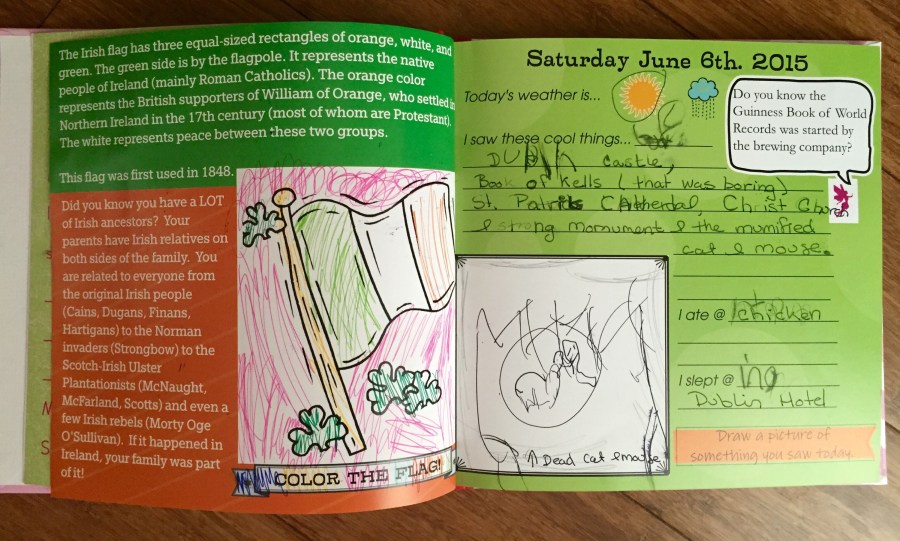 The Irish flag has three equal-sized rectangles of orange, white, and
green. The green side is by the flagpole. It represents the native
people of Ireland (mainly Roman Catholics). The orange color
represents the British supporters of William of Orange, who settled in
Northern Ireland in the 17th century (most of whom are Protestant).
The white represents peace between these two groups.
This flag was first used in 1848.
Did you know you have a LOT
of Irish ancestors? Your
parents have Irish relatives on
both sides of the family. You
are related to everyone from
the original Irish people
(Cains, Dugans, Finans,
Hartigans) to the Norman
invaders (Strongbow) to the
Scotch-Irish Ulster
Plantationists (McNaught,
McFarland, Scotts) and even a
few Irish rebels (Morty Oge
O'Sullivan). If it happened in
Ireland, your family was part
of it!
COLOR THE FLAG!
Saturday June 6th. 2015
Today's weather is...
Do you know the
Guinness Book of World
Records was started by
the brewing company?
I saw these cool things...
Castle,
Book of Kells (that was boring)
St. Patriks Catherdal, Christ Church
& strong monument & the mumified
cat & mouse.
I ate @ chicken
I slept @
Dublin Hotel
Dead Cat & mouse
Draw a picture of
something you saw today.